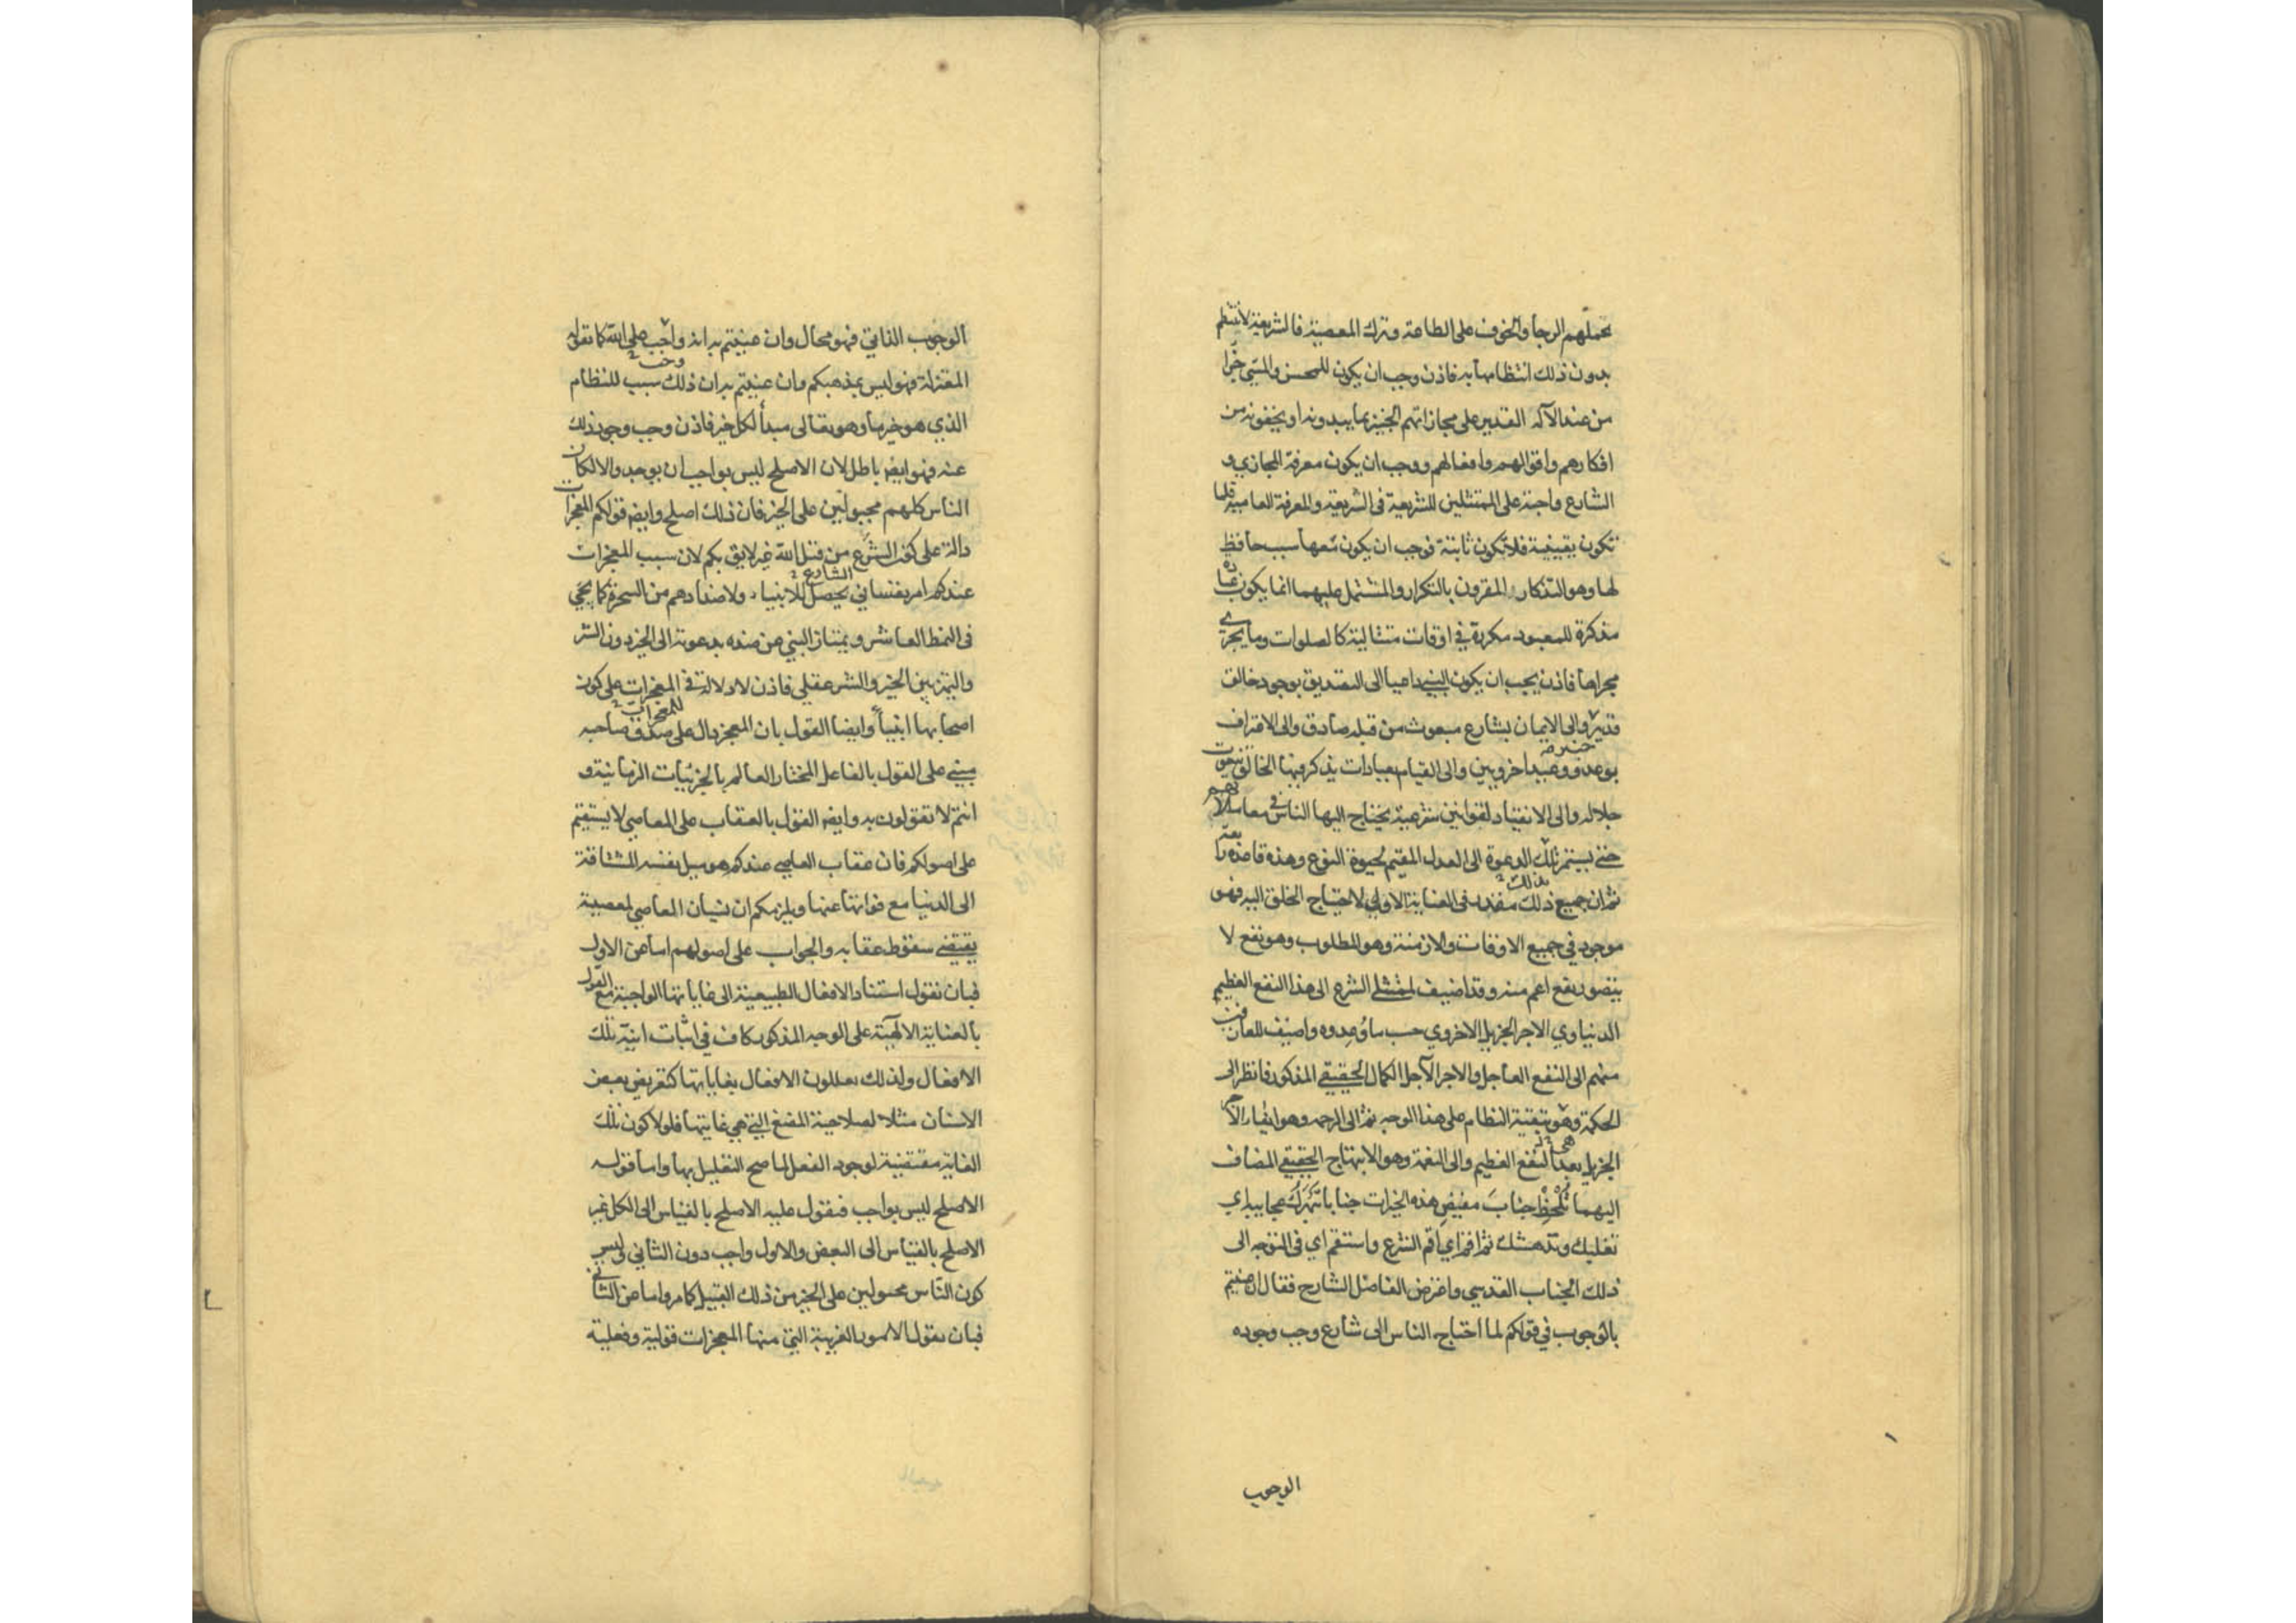 يحملهم الرجا والخوف على الطاعة وترك المعصية فالشريعة لا تنتظم
بدون ذلك انتظامها به فاذن وجب ان يكون للمحسن والمسئ جزا
من عند الآله القدير على مجازاتهم الخبير بما يبدونه او يخفونه من
افكارهم واقوالهم وافعالهم ووجب ان يكون معرفة المجازي و
الشارع واجبة على الممتثلين للشريعة فى الشريعة والمعرفة العامية قلما
تكون يقينية فلا تكون ثابتة فوجب ان يكون معها سبب حافظ
لها وهو التذكار المقرون بالتكرار والمشتمل عليهما انما يكون عبادة
مذكرة للمعبود مكررة في اوقات متتالية كالصلوات وما يجرى
مجراها فاذن يجب ان يكون النبي داعيا الى التصديق بوجود خالق
قدير والى الايمان بشارع مبعوث من قبله صادق والى الاعتراف
بوعد ووعيد اخرويين والى القيام بعبادات يذكر فيها الخالق بنعوت
جلاله والى الانقياد لقوانين شرعية يحتاج اليها الناس في معاملاتهم
حتى يستمر بذلك الدعوة الى العدل المقيم لحيوة النوع وهذه قاعدة رابعة
ثم ان جميع ذلك مقدر فى العناية الاولى لاحتياج الخلق اليه فهو
موجود في جميع الاوقات والازمنة وهو المطلوب وهو نفع لا
يتصور نفع اعم منه وقد اضيف لممتثلي الشرع الى هذا النفع العظيم
الدنياوي الاجر الجزيل الاخروي حسب ما وُعدوه واضيف للعارفين
منهم الى النفع العاجل والاجر الآجل الكمال الحقيقي المذكور فانظر الى
الحكمة وهو تبقية النظام على هذا الوجه ثم الى الرحمة وهو ايفاء الاجر
الجزيل بعد النفع العظيم والى النعمة وهو الابتهاج الحقيقي المضاف
اليهما تلحظ جناب مفيض هذه الخيرات جنابا تبهرك عجايبه اي
تغلبك وتدهشك ثم اقم اي اقم الشرع واستقم اي فى التوجه الى
ذلك الجناب القدسي واعترض الفاضل الشارح فقال ان عنيتم
بالوجوب في قولكم لما احتاج الناس الى شارع وجب وجوده
الوجوب
الوجوب الذاتي فهو محال وان عنيتم به انه واجب على الله كما تقوله
المعتزلة فهو ليس بمذهبكم وان عنيتم به ان ذلك سبب للنظام
الذي هو خير ما وهو تعالى مبدأ لكل خير فاذن وجب وجود ذلك
عنه فهو ايضا باطل لان الاصلح ليس بواجب ان يوجد والا لكان
الناس كلهم مجبولين على الخير فان ذلك اصلح وايضا قولكم المعجزات
دالة على كون الشرع من قبل الله غير لايق بكم لان سبب المعجزات
عندكم امر نفساني يحصل للانبياء ولاضدادهم من السحرة كما يجي
فى النمط العاشر ويمتاز النبي عن ضده بدعوته الى الخير دون الشر
والتميز بين الخير والشر عقلي فاذن لا دلالة في المعجزات على كون
اصحابها انبياء وايضا القول بان المعجز دال على صدق صاحبه
مبني على القول بالفاعل المختار العالم بالجزئيات الزمانية و
انتم لا تقولون به وايضا القول بالعقاب على المعاصي لا يستقيم
على اصولكم فان عقاب العاصي عندكم هو ميل نفسه المشتاقة
الى الدنيا مع فواتها عنها ويلزمكم ان نسيان المعاصي لمعصية
يقتضي سقوط عقابه والجواب على اصولهم اما عن الاول
فبان نقول استناد الافعال الطبيعية الى غاياتها الواجبة مع القول
بالعناية الالهية على الوجه المذكور كاف في اثبات انية تلك
الافعال ولذلك يعللون الافعال بغاياتها كتعريض بعض
الاسنان مثلا لصلاحية المضغ التي هي غايتها فلولا كون تلك
الغاية مقتضية لوجود الفعل لما صح التعليل بها واما قوله
الاصلح ليس بواجب فنقول عليه الاصلح بالقياس الى الكل غير
الاصلح بالقياس الى البعض والاول واجب دون الثاني وليس
كون الناس مجبولين على الخير من ذلك القبيل كما مر واما عن الثاني
فبان نقول الامور الغريبة التي منها المعجزات قولية وفعلية